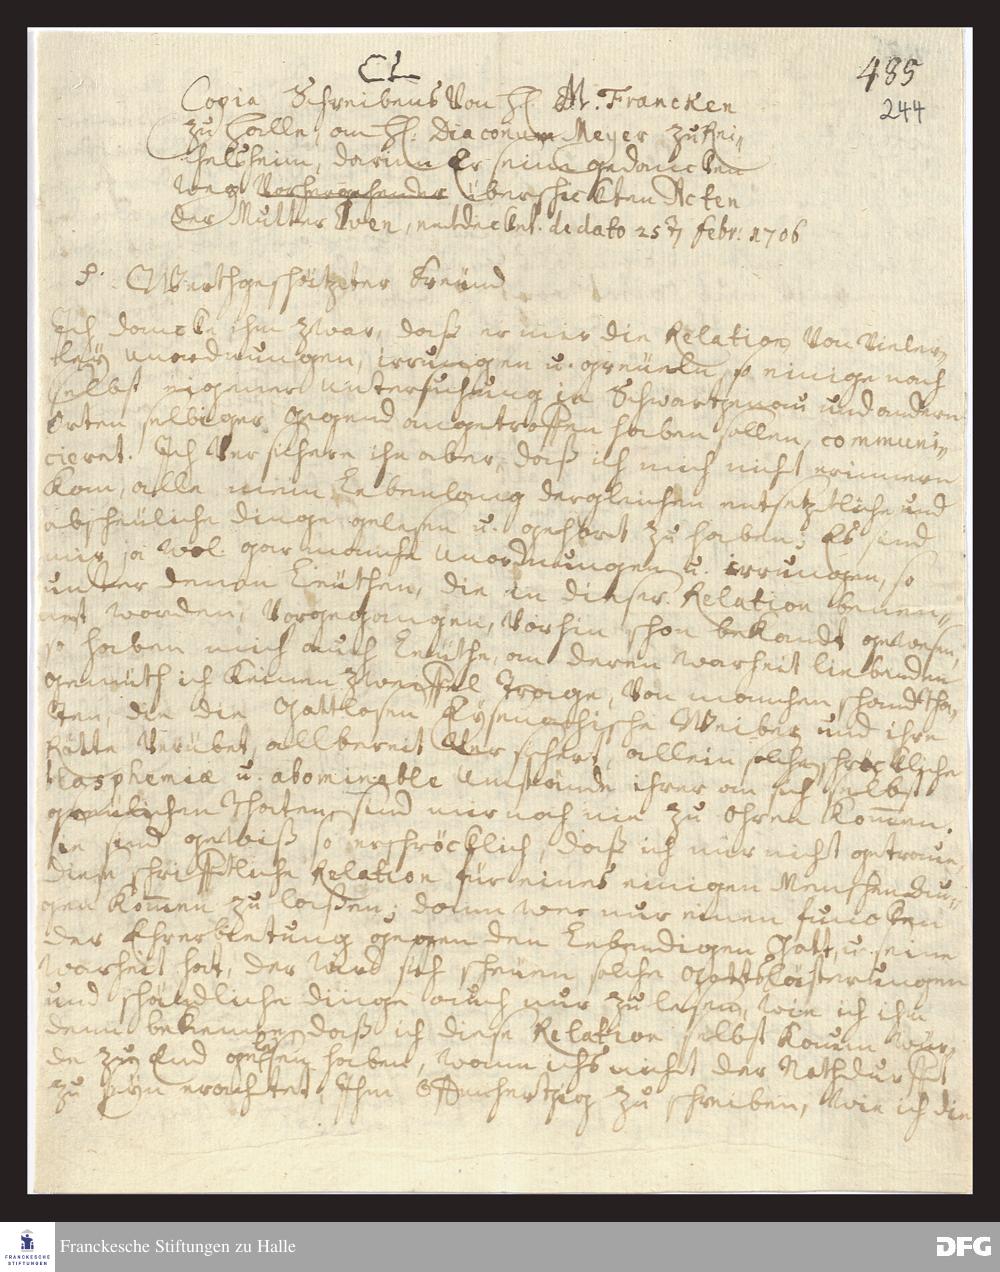 CL
485
244
Copia Schreibens Von H. M. Francken
zu Halle, an H. Diaconum Meyer zu Rei„
chelsheim, darinn Er seine gedancken
weg. Vorhergehender überschickten Acten
der Mutter Even, entdecket. de dato 25 febr: 1706
P. Werthgeschätzter Freünd
Ich dancke ihm zwar, daß er mir die Relation Von vieler„
leÿ unordnungen, irrungen u. greüeln, so einige nach
selbst eigener untersuchung in Schwartzenau und andern
Orten selbiger Gegend angetroffen haben sollen, communi„
cieret. Ich Versichere ihn aber, daß ich mich nicht erinnern
kan, alle mein Lebenlang dergleichen entsetzliche und
abscheüliche dinge gelesen u. gehört zu haben; Es sind
mir ja wol gar manche unordnungen u. irrungen, so
unter denen Leüthen, die in dieser Relation benen„
net worden, Vorgegangen, Vorhin schon bekandt gewesen,
so haben mich auch Leüthe, an deren warheit liebenden
gemüth ich keinen zweiffel trage, Von manchen schandtha„
ten, die die Gottlosen Eÿsenachische Weiber und ihre
Rotte Verübet, allbereit Versichert, allein solche schröckliche
blasphemiæ u. abominable umstände ihrer an sich selbst
greülichen Thaten, sind mir noch nie zu Ohren kommen.
Sie sind gewiß so erschröcklich, daß ich mir nicht getraue,
diese schrifftliche Relation für eines einigen Menschen Au„
gen kommen zu laßen; dann wer nur einen funcken
der Ehrerbietung gegen den Lebendigen Gott, u. seine
warheit hat, der wird sich scheüen solche Gottslästerungen
und schändliche dinge auch nur zu lesen, wie ich ihm
denn bekenne, daß ich diese Relation selbst kaum wür„
de zu End gelesen haben, wann ichs nicht der Nothdurfft
zu seÿn erachtet, Ihm Offenhertzig zu schreiben, wie ich die
Franckesche Stiftungen zu Halle
FRANCKESCHE
STIFTUNGEN
DFG